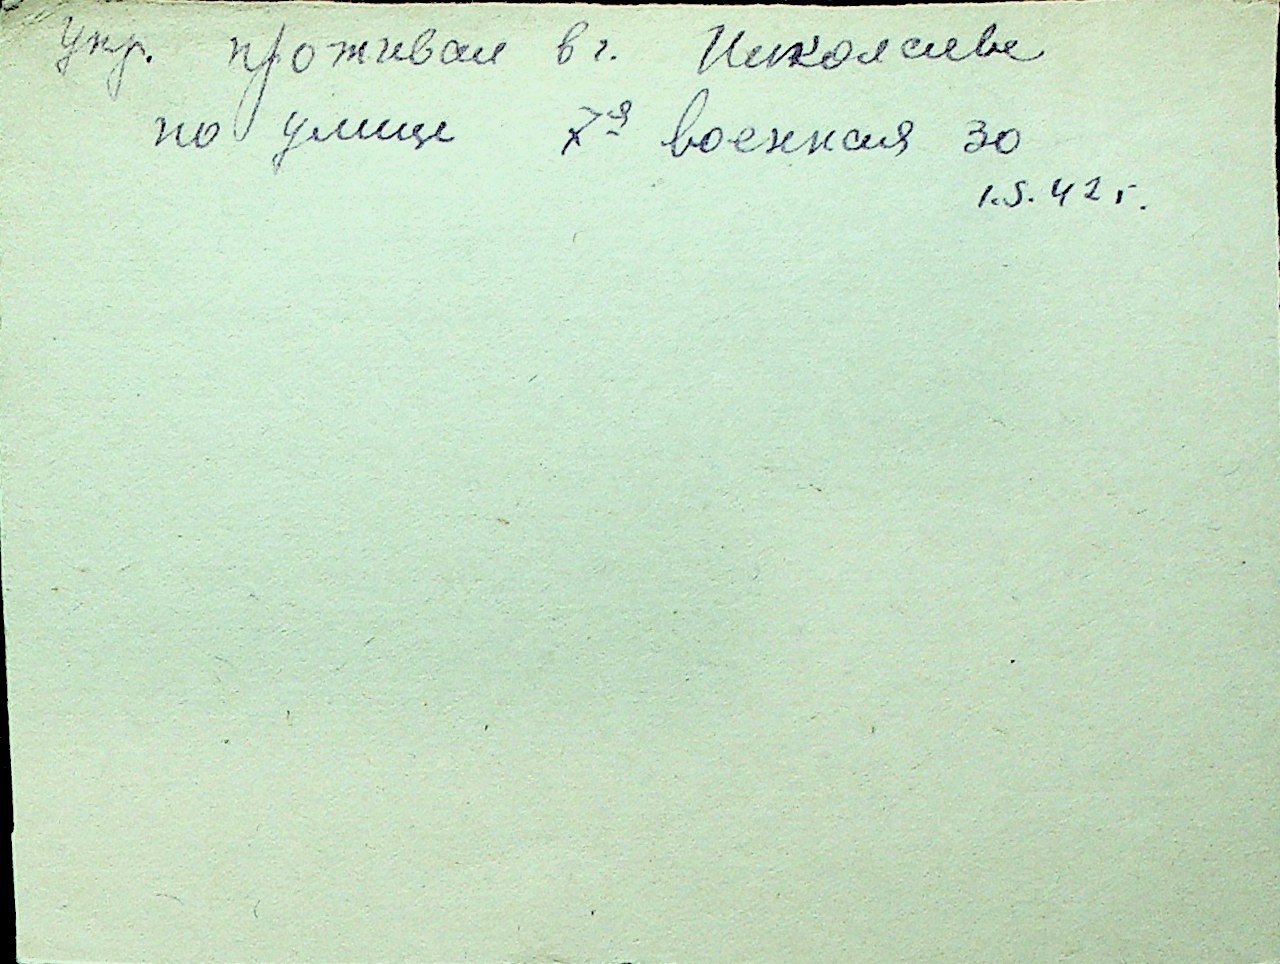 укр. проживал в г. Николаеве
по улице 7я военная 30
1.5.42 г.